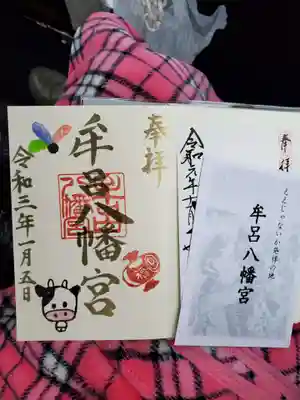 奉拝
牟呂八幡宮
令和三年一月五日
奉拝
ええじゃないか発祥の地
牟呂八幡宮
令和六年